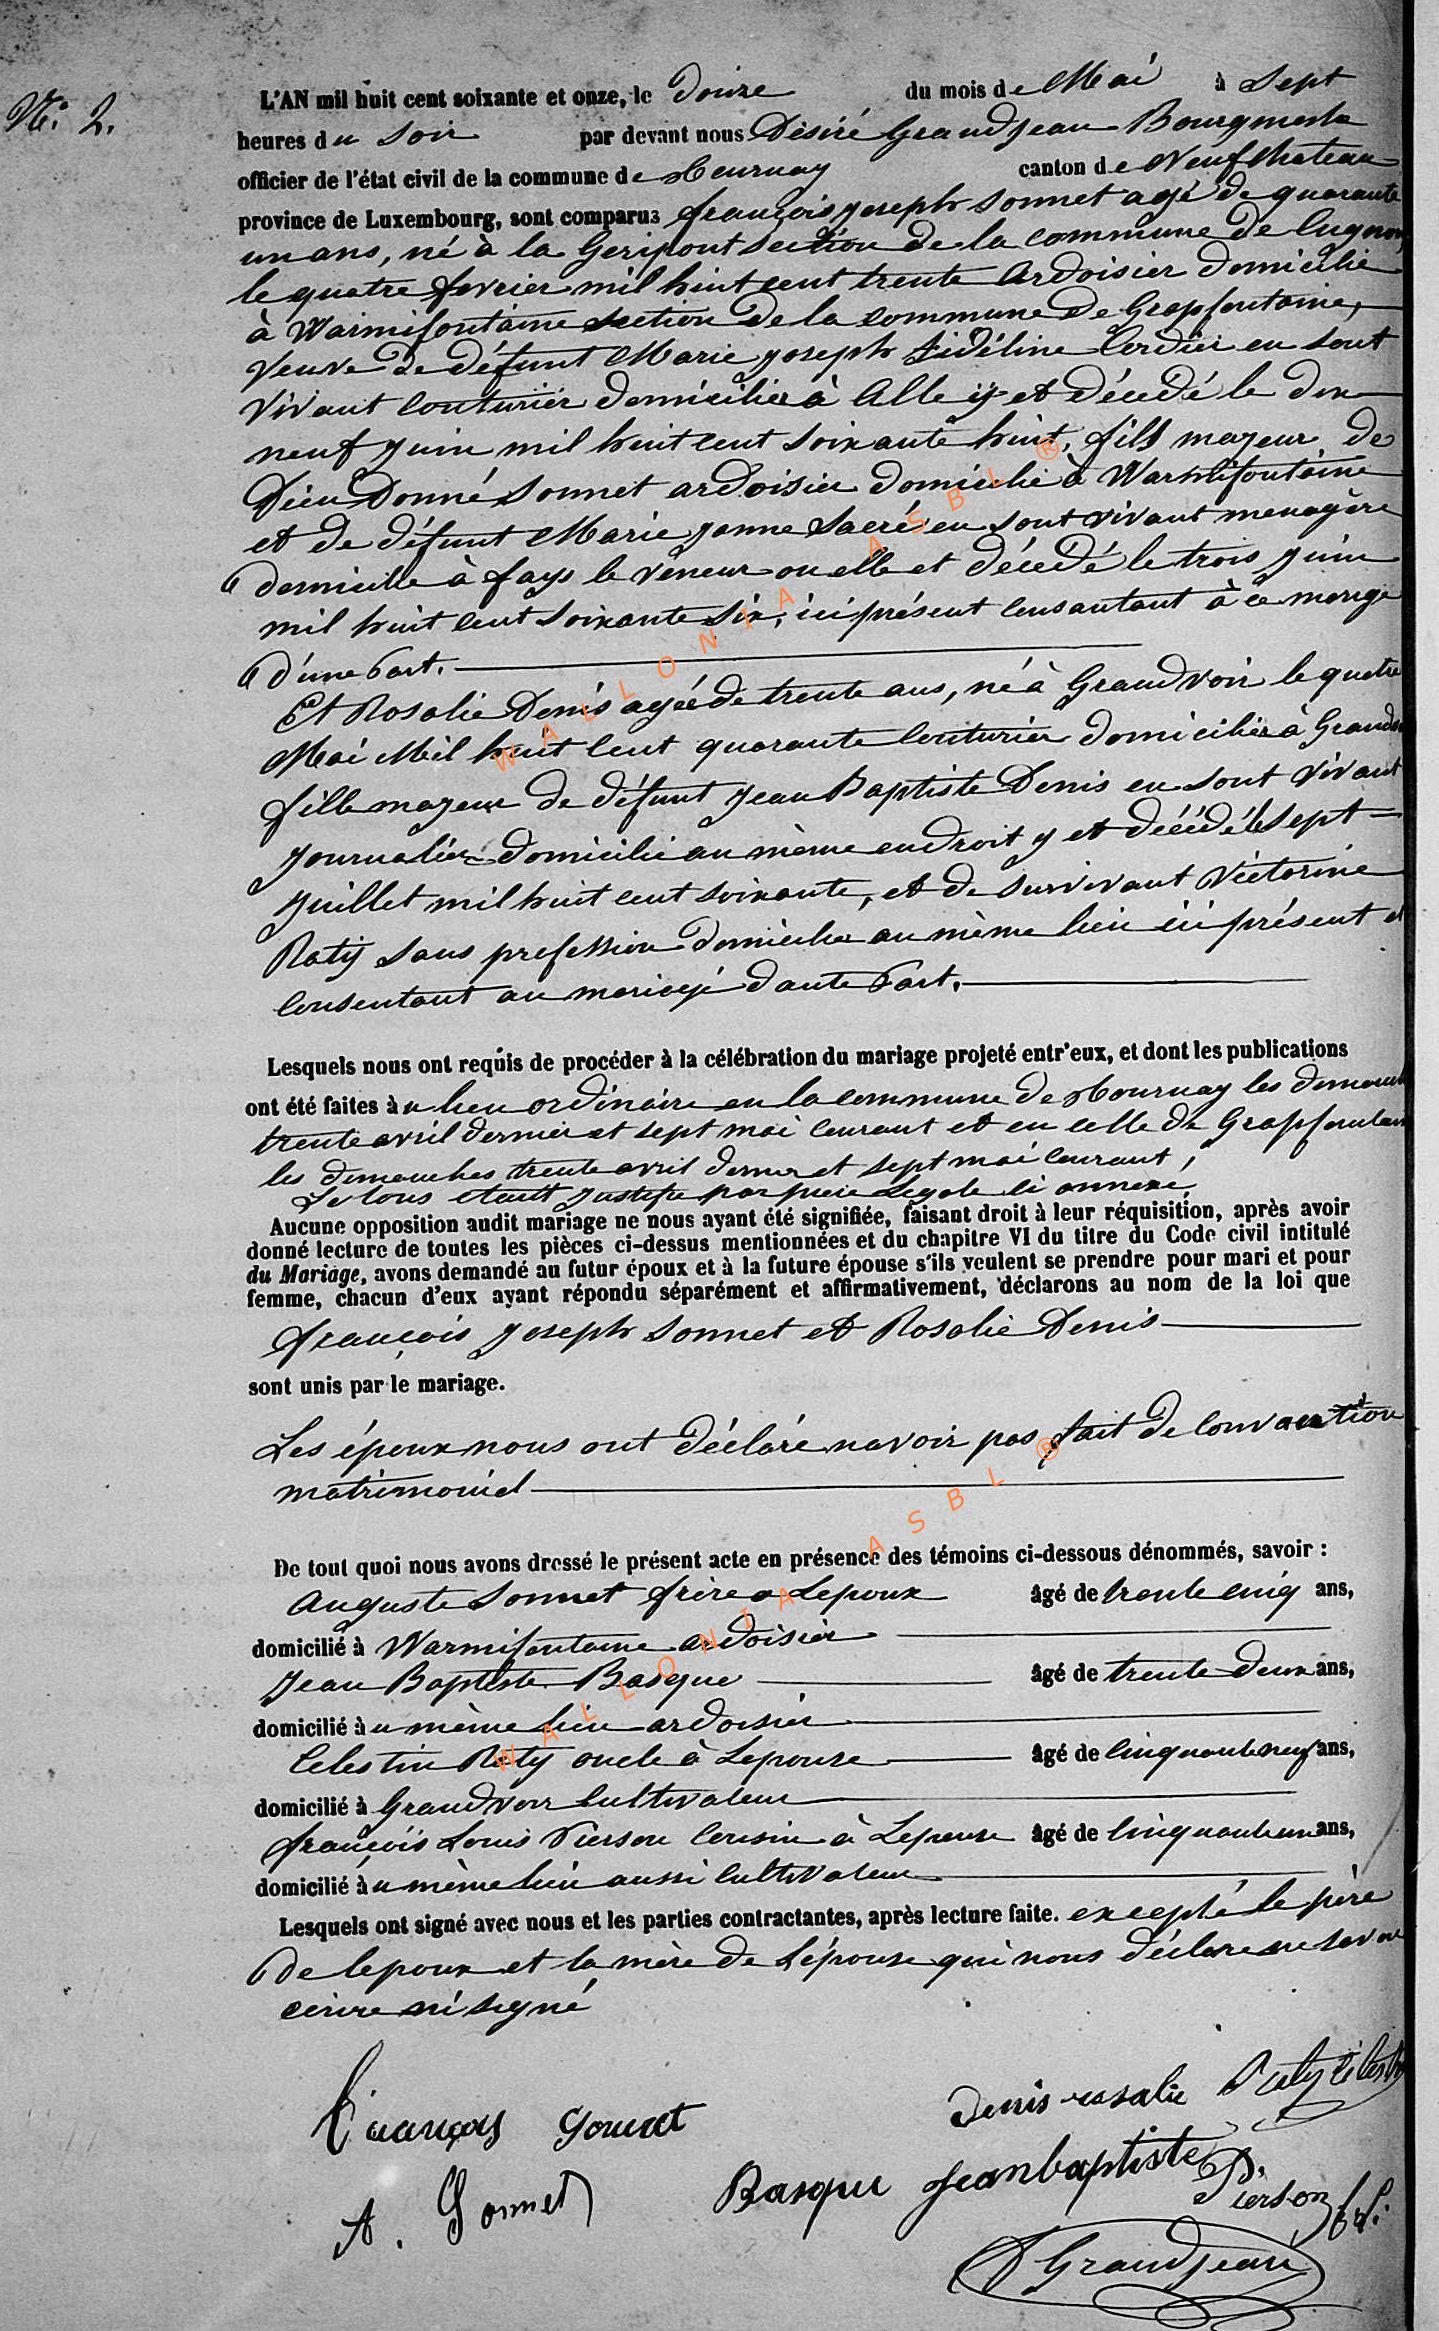 N°. 2.
L'AN mil huit cent soixante et onze, le douze du mois de Mai à Sept
heures du Soir par devant nous Désiré Grandjean Bourgmestre
officier de l'état civil de la commune de Tournay canton de Neufchateau
province de Luxembourg, sont comparus françois joseph Sonnet agé de quarante
un ans, né à la Geripont section de la commune de Cugnon,
le quatre fevrier mil huit cent trente Ardoisier domicilié
à Warmifontaine section de la commune de Grapfontaine,
veuve de défunt Marie joseph Fidéline Cordier en sont
vivant couturièr domicilièr à Alle ÿ et décédé le dix
neuf juin mil huit cent soixante huit, fils majeur de
Dieudonné Sonnet ardoisier domicilié à Warmifontaine
et de défunt Marie janne Sacré en sont vivant menagère
domicille à fays le veneur ou elle et décédé le trois juin
mil huit cent soixante six, ici présent consantant à ce marige
d'une Part.
Et Rosalie Denis agée de trente ans, né à Grandvoir le quatre
Mai Mil huit cent quarante couturièr domicilièr à Grandv
fille majeur de défunt jean Baptiste Denis en sont vivant
journalier domicilié au même endroit y et décédé le sept
juillet mil huit cent soixante, et de survivant Victorine
Ratÿ sans profession domicilié au même lieu ici présent et
consentant au mariage d'aute Part.
Lesquels nous ont requis de procéder à la célébration du mariage projeté entr'eux, et dont les publications
ont été faites au lieu ordinaire en la commune de Tournay les dimanch
trente avril dernier et sept mai courant et en celle de Grapfontain
les dimanches trente avril dernier et sept mai courant,
Le tous etant justifié par piece Legale ci annexé,
Aucune opposition audit mariage ne nous ayant été signifiée, faisant droit à leur réquisition, après avoir
donné lecture de toutes les pièces ci-dessus mentionnées et du chapitre VI du titre du Code civil intitulé
du Mariage, avons demandé au futur époux et à la future épouse s'ils veulent se prendre pour mari et pour
femme, chacun d'eux ayant répondu séparément et affirmativement, déclarons au nom de la loi que
françois joseph Sonnet et Rosalie Denis
sont unis par le mariage.
Les époux nous ont déclaré navoir pas fait de convantion
matrimoniel
De tout quoi nous avons dressé le présent acte en présence des témoins ci-dessous dénommés, savoir :
Auguste Sonnet frère a Lepoux âgé de trente cinq ans,
domicilié à Warmifontaine ardoisier
Jean Baptiste Basque âgé de trente deux ans,
domicilié au même lieu ardoisier
Celestin Raty oncle à Lepouse âgé de cinquante neuf ans,
domicilié à Grandvoir cultivateur
françois Louis Pierson Cousin à Lepouse âgé de cinquante un ans,
domicilié au même lieu aussi cultivateur
Lesquels ont signé avec nous et les parties contractantes, après lecture faite. excepté le père
de lepoux et la mère de Lépouse qui nous déclare ne savoir
ecrire ni signé
François Sonnet
Denis rosalie Raty Celestin
A. Sonnet
Basque Jeanbaptiste
Pierson f. L.
D Grandjean
WALLONIA ASBL ®
WALLONIA ASBL ®